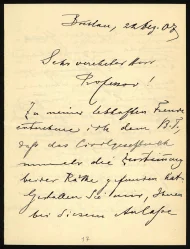 Breslau, 22 Dez. 07
Sehr verehrter Herr
Professor!
Zu meiner lebhaften Freude
entnehme ich dem B.T.,
daß das
nunmehr die
beider Räthe gefunden hat.
Gestatten Sie mir, Ihnen
bei diesem Anlasse